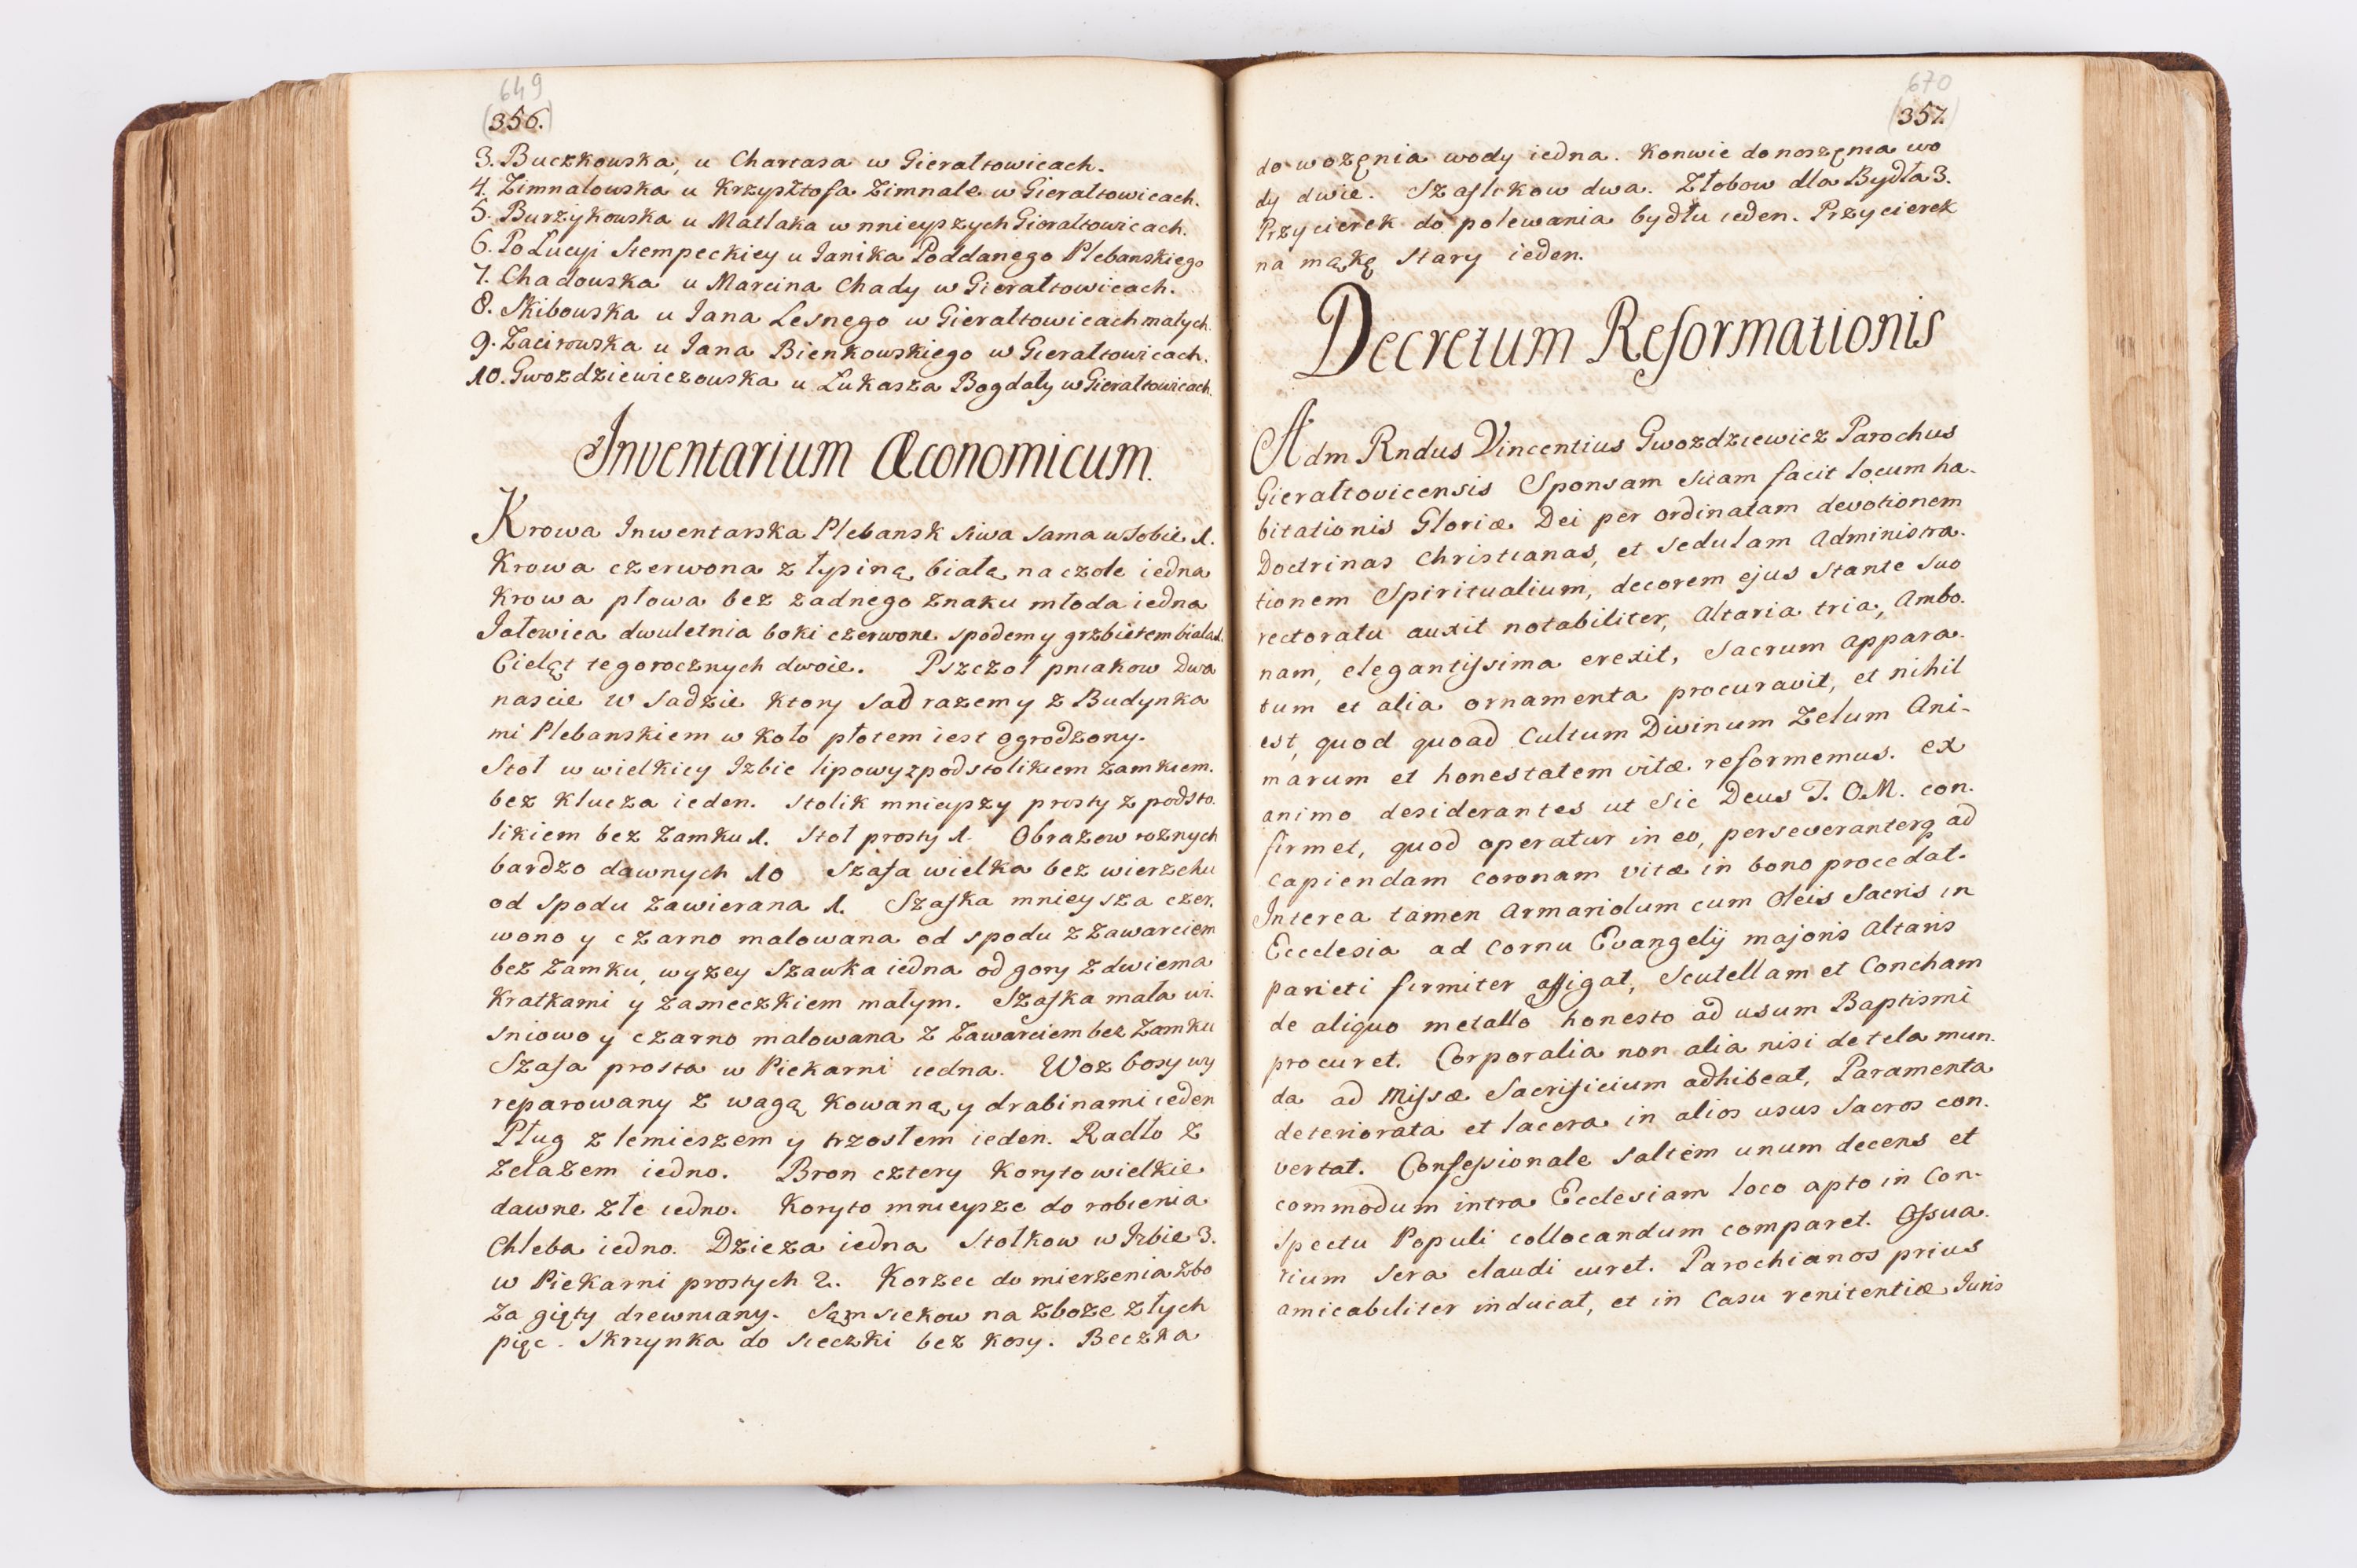 649
(356.)
3. Buczkowska, u Chartasa w Gierałtowicach.
4. Zimnalowska u Krzysztofa Zimnale w Gierałtowicach.
5. Burzykowska u Matlaka w mnieyszych Gierałtowicach.
6. Po Lucyi Stempeckiey u Janika Poddanego Plebanskiego
7. Chadowska u Marcina Chady w Gierałtowicach.
8. Skibowska u Jana Lesnego w Gierałtowicach małych.
9. Zacirowska u Jana Bienkowskiego w Gierałtowicach.
10. Gwozdziewiczowska u Lukasza Bogdały w Gierałtowicach.
Inventarium Œconomicum.
Krowa Inwentarska Plebansk siwa sama w sobie 1.
Krowa czerwona z łysiną białą na czole iedna
Krowa płowa bez zadnego znaku młoda iedna
Jałowica dwuletnia boki czerwone spodem y grzbietem biała 1.
Cieląt tegorocznych dwoie. Pszczoł pniakow dwa
nascie w sadzie ktory sad razem y z Budynka
mi Plebanskiem w koło płotem iest ogrodzony.
Stoł w wielkiey Izbie lipowy z podstolikiem zamkiem.
bez klucza ieden. Stolik mnieyszy prosty z podsto
likiem bez zamku 1. Stoł prosty 1. Obrazow roznych
bardzo dawnych 10 Szafa wielka bez wierzchu
od spodu zawierana 1. Szafka mnieysza czer.
wono y czarno malowana od spodu z zawarciem
bez zamku, wyzey Szawka iedna od gory z dwiema
kratkami y zameczkiem małym. Szafka mała wi.
sniowo y czarno malowana z zawarciem bez zamku
Szafa prosta w Piekarni iedna. Woz bosy wy
reparowany z wagą kowaną y drabinami ieden
Pług z lemieszem y trzosłem ieden. Radło z
zelazem iedno. Bron cztery Koryto wielkie
dawne złe iedno. Koryto mnieysze do robienia
Chleba iedno. Dzieza iedna Stołkow w Izbie 3.
w Piekarni prostych 2. Korzec do mierzenia zbo
za gięty drewniany. Sąmsiekow na zboze złych
pięc. Skrzynka do sieczki bez kosy. Beczka
670
(357.)
do wozęnia wody iedna. Konwie do noszęnia wo
dy dwie. Szaflikow dwa. Złobow dla Bydła 3.
Przycierek do polewania bydłu ieden. Przycierek
na mąkę stary ieden.
Decretum Reformationis
Adm Rndus Vincentius Gwozdziewicz Parochus
Gierałtovicensis Sponsam suam facit locum ha-
bitationis Gloriæ Dei per ordinatam devotionem
Doctrinas Christianas, et sedulam administra.
tionem Spiritualium, decorem ejus stante suo
rectoratu auxit notabiliter, Altaria tria, Ambo.
nam, elegantissima erexit, sacrum appara.
tum et alia ornamenta procuravit, et nihil
est, quod quoad Cultum Divinum Zelum Ani-
marum et honestatem vitæ reformemus. ex
animo desiderantes ut sic Deus T. O.M. con.
firmet, quod operatur in eo, perseveranterq ad
capiendam coronam vitæ in bono procedat.
Interea tamen armariolum cum Oleis Sacris in
Ecclesia ad cornu Evangelij majoris Altaris
parieti firmiter affigat, Scutellam et Concham
de aliquo metallo honesto ad usum Baptismi
procuret. Corporalia non alia nisi de tela mun.
da ad Missæ Sacrificium adhibeat, Paramenta
deteriorata et lacera in alios usus sacros con.
vertat. Confessionale saltem unum decens et
commodum intra Ecclesiam loco apto in Con-
spectu Populi collocandum comparet. Ossua.
rium sera claudi curet. Parochianos prius
amicabiliter inducat, et in Casu renitentiæ Juris